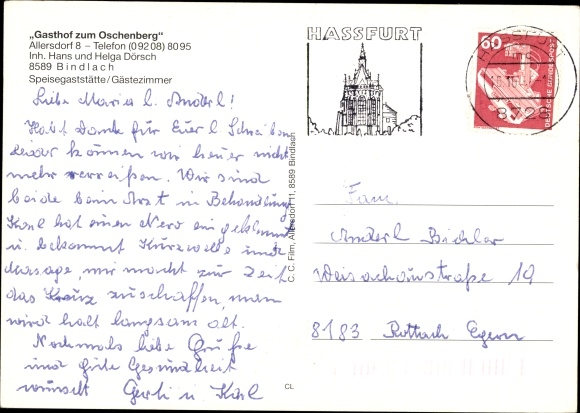 „Gasthof zum Oschenberg"
Allersdorf 8 – Telefon (09208) 8095
Inh. Hans und Helga Dörsch
8589 Bindlach
Speisegaststätte/Gästezimmer
Liebe Maria l. Anderl!
Habt Dank für Euer l Schreiben
leider können wir heuer nicht
mehr verreißen. Wir sind
beide beim Arzt in Behandlung
Karl hat einen Nerv eingeklemmt
u. bekommt Kurzwelle und
Massage, mir macht zur Zeit
das Kreuz zu schaffen, man
wird halt langsam alt.
Nochmals liebe Grüße
und gute Gesundheit
wünscht Gerti u Karl
C. C. Film, Allersdorf 11, 8589 Bindlach
CL
HASSFURT
HASSFURT
8728
60
DEUTSCHE BUNDESPOST
Fam.
Anderl Bichler
Weisachaustraße 19
8183 Rottach Egern